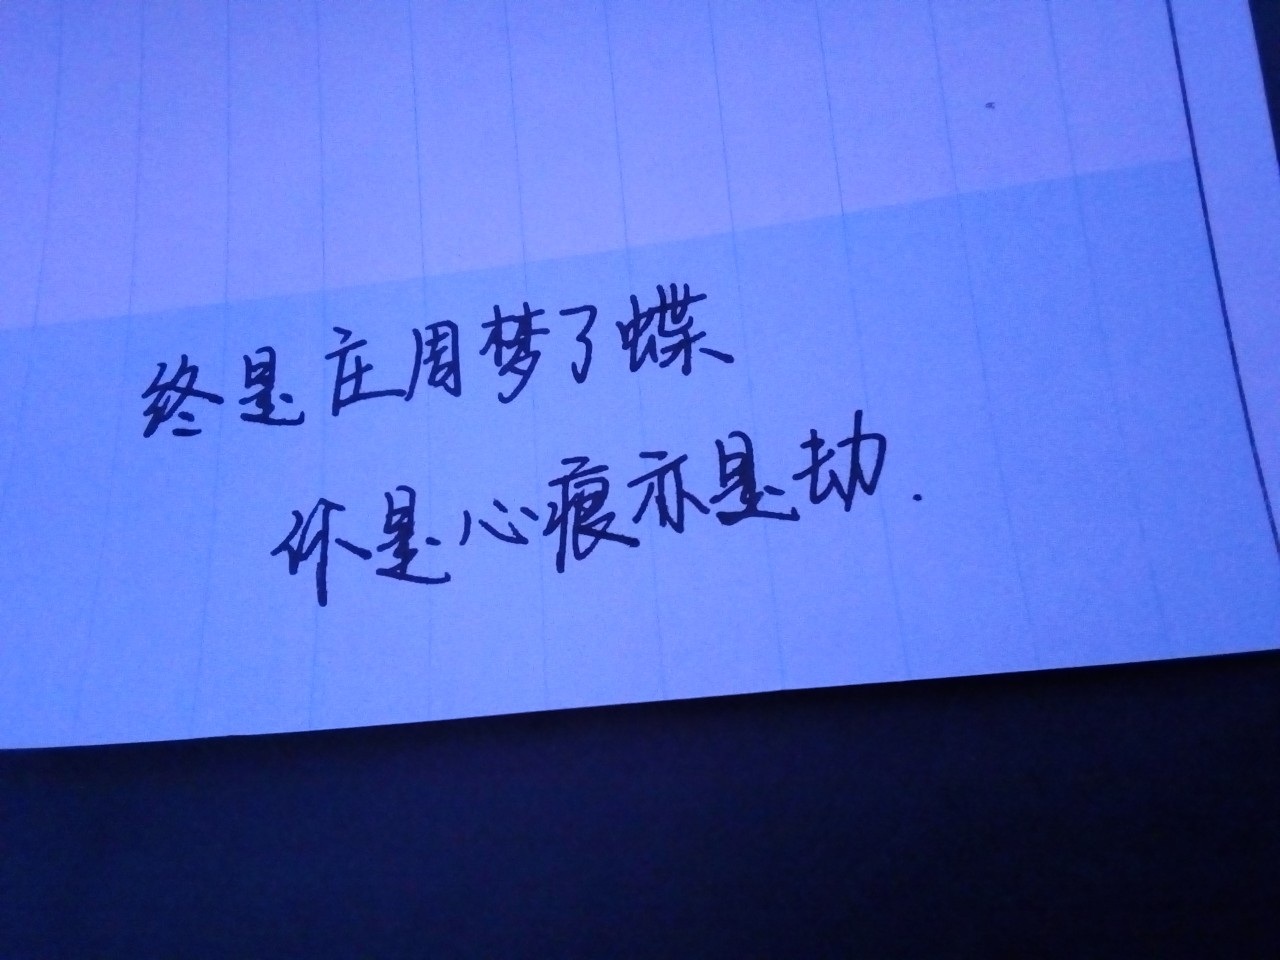 终是庄周梦了蝶
你是心痕亦是劫.